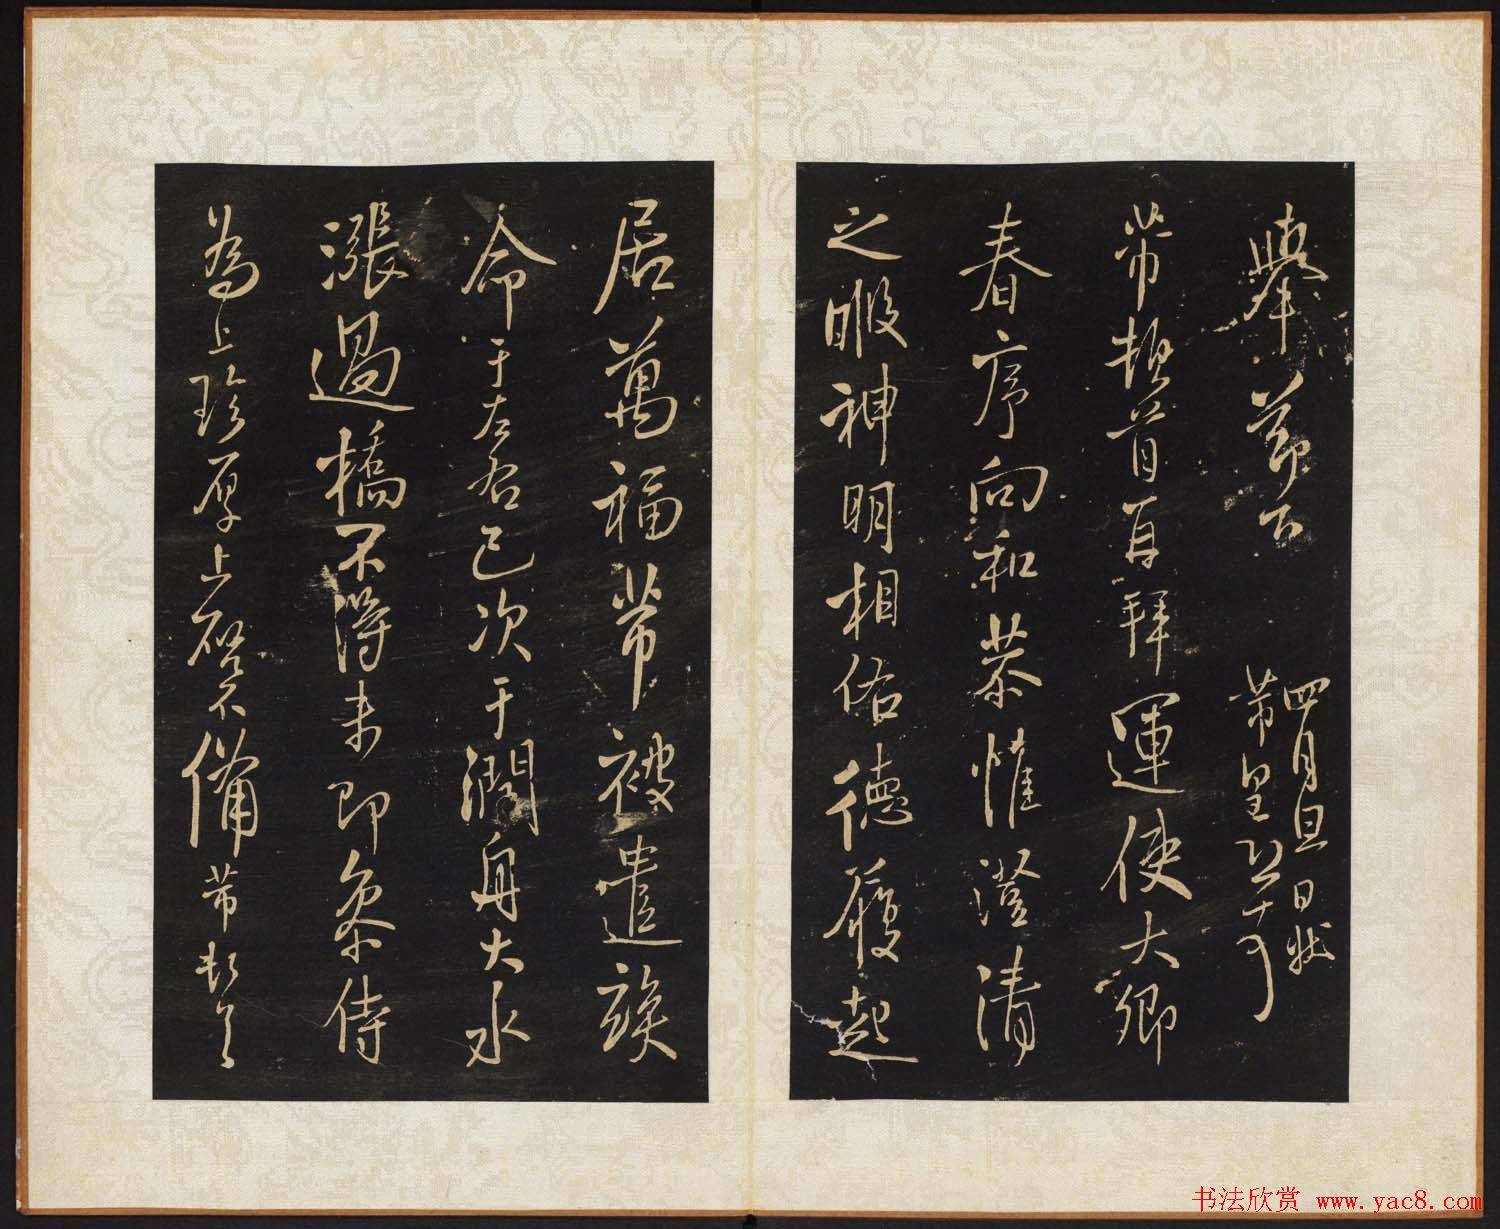 舉 節下
四月旦日狀
芾皇恐
芾頓首再拜運使大卿
春序向和恭惟澄清
之暇神明相佑德履起
居萬福芾被遣俟
命于左右已次于潤舟大水
漲過橋不得来即參侍
為上珍厚上啓不備芾頓首
书法欣赏 www.yac8.com